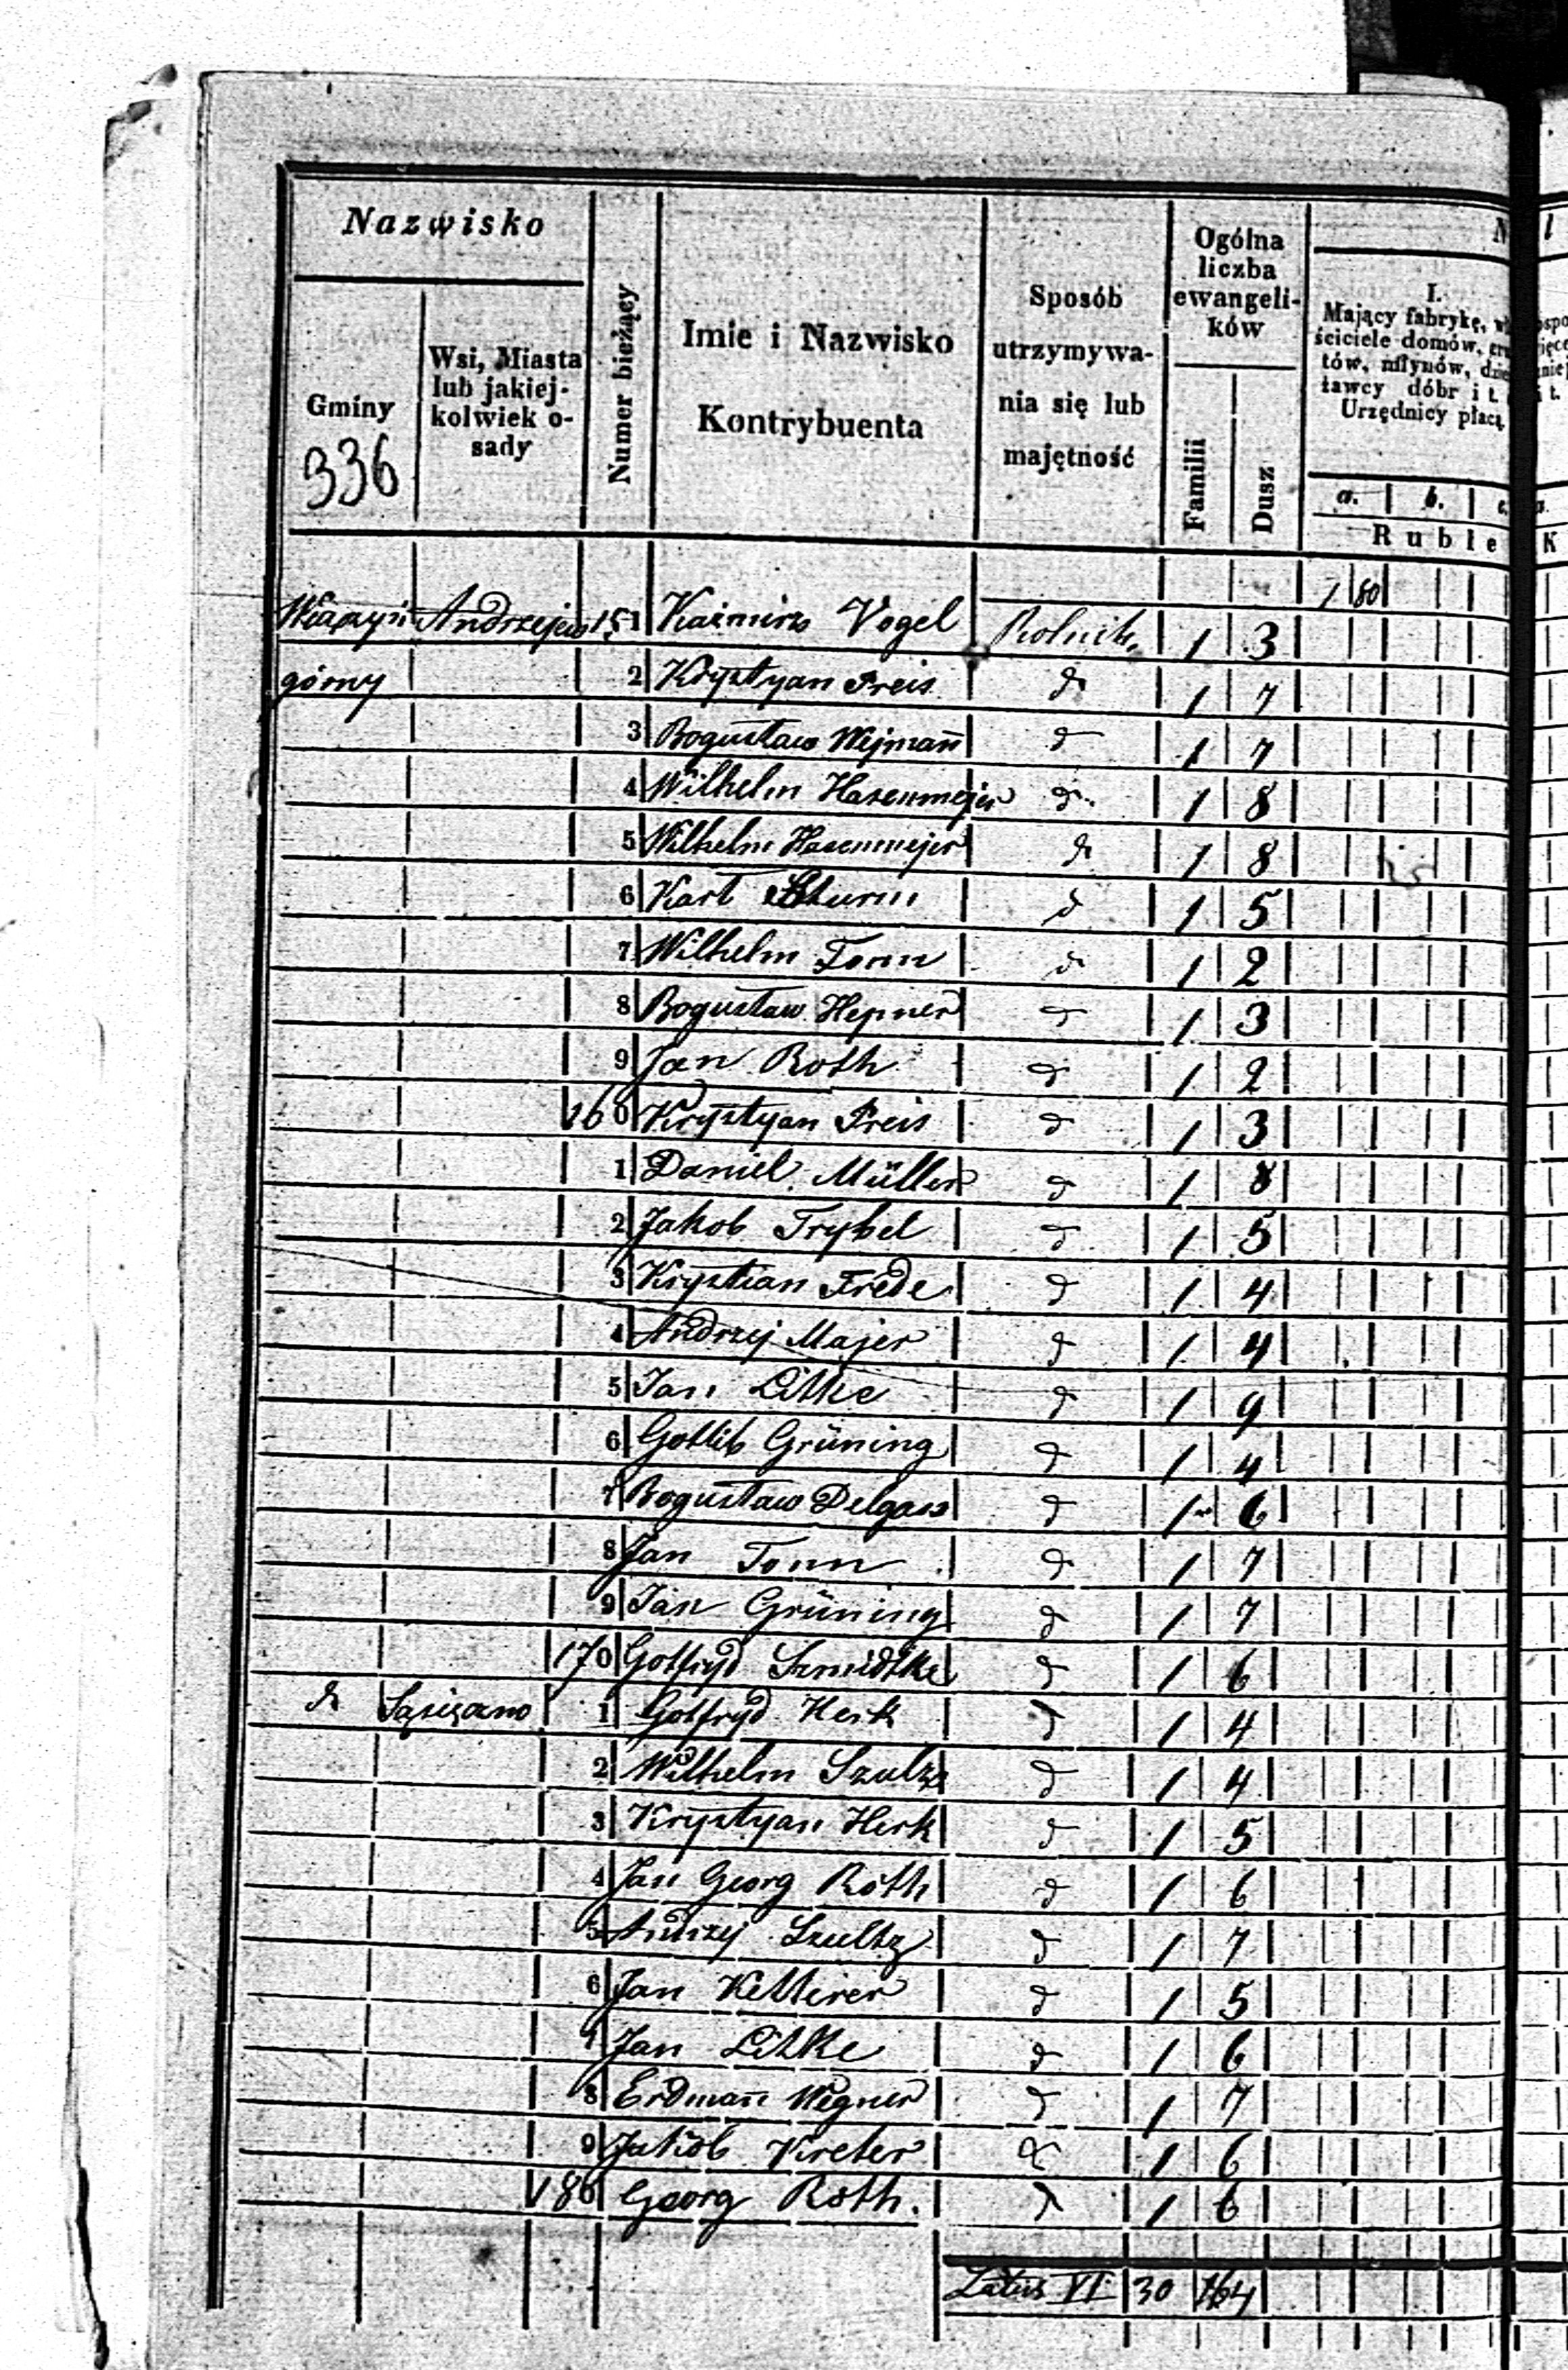 Nazwisko
Gminy
336
Wsi, Miasta
lub jakiej-
kolwiek o-
sady
Numer bieżący
Imie i Nazwisko
Kontrybuenta
Sposób
utrzymywa-
nia się lub
majętność
Ogólna
liczba
ewangeli-
ków
Familii
Dusz
I.
Mający fabrykę,
ściciele domów,
tów, młynów,
ławcy dóbr i t.
Urzędnicy płacą
a. b. c.
Ruble K
1 80
górny Andrzejew 151 Kaźmirz Vogel Rolnik 1 3
2 Krystyan Freis d 1 7
3 Bogusław Wejmañ d 1 7
4 Wilhelm Hasenmejer d 1 8
5 Wilhelm Hasenmejer d 1 8
6 Karl Sturm d 1 5
7 Wilhelm Tonn d 1 2
8 Bogusław Hepner d 1 3
9 Jan Roth d 1 2
160 Krystyan Freis d 1 3
1 Daniel Müller d 1 8
2 Jakob Trybel d 1 5
3 Krystian Frede d 1 4
4 Andrzej Majer d 1 4
5 Jan Litke d 1 9
6 Gotlib Grüning d 1 4
7 Bogusław Delgass d 1 6
8 Jan Tonn d 1 7
9 Jan Grüning d 1 7
170 Gotfryd Szmidtke d 1 6
d 1 Gotfryd Herk d 1 4
2 Wilhelm Szulz d 1 4
3 Krystyan Herk d 1 5
4 Jan Georg Roth d 1 6
5 Andrzej Szultz d 1 7
6 Jan Ketterer d 1 5
7 Jan Litke d 1 6
8 Erdmañ Wegner d 1 7
9 Jakób Kreter d 1 6
180 Georg Roth. d 1 6
Latus VI 30 164